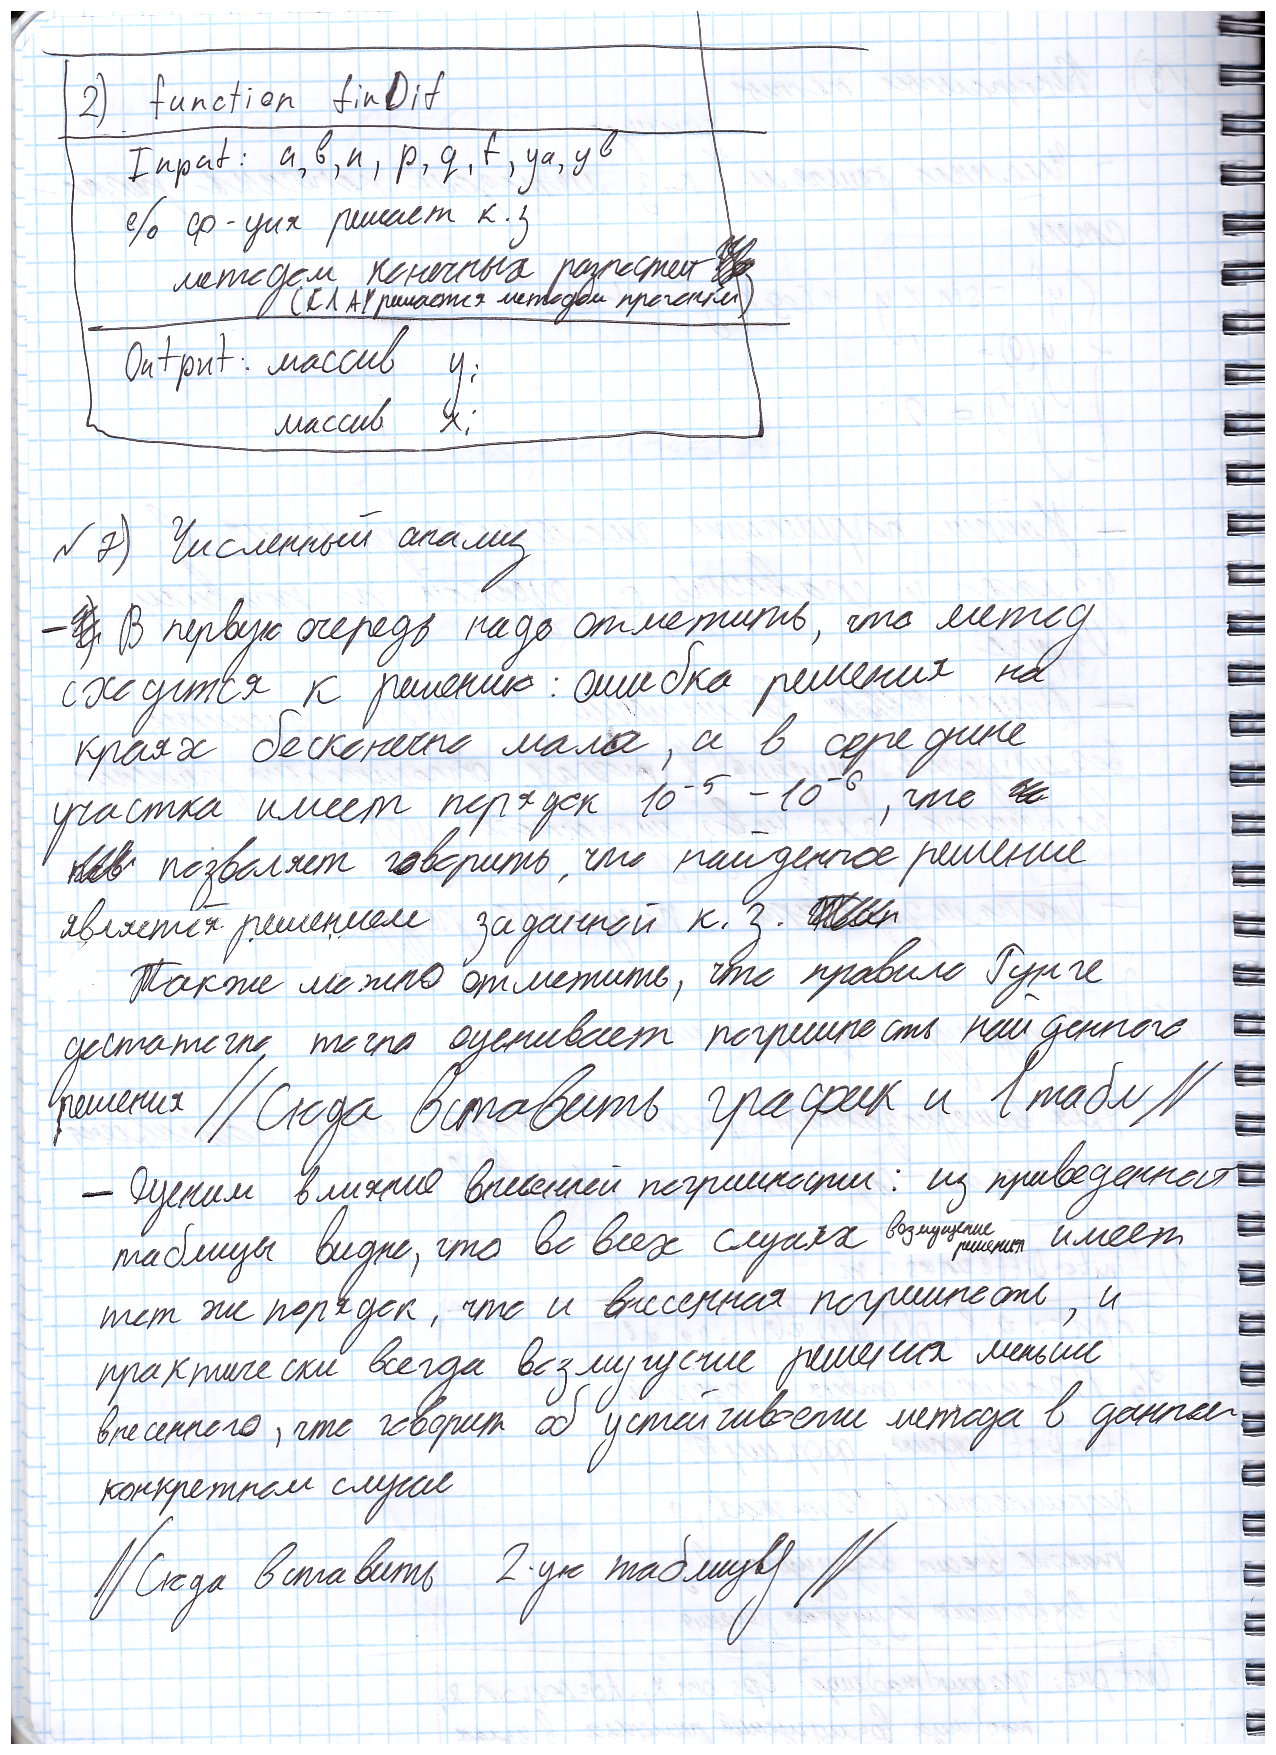 2) function finDif
Input: a, b, n, p, q, f, ya, yb
% ф-ция решает к.з
методом конечных разностей
(СЛАУ решается методом прогонки)
Output: массив yi
массив xi
√7) Численный анализ
– В первую очередь надо отметить, что метод
сходится к решению: ошибка решения на
краях бесконечно мала, а в середине
участка имеет порядок 10⁻⁵ – 10⁻⁶, что
позволяет говорить, что найденное решение
является решением заданной к.з.
Также можно отметить, что правило Рунге
достаточно точно оценивает погрешность найденного
решения //Сюда вставить график и 1 табл//
– Оценим влияние внесенной погрешности: из приведенной
таблицы видно, что во всех случаях возмущение решения имеет
тот же порядок, что и внесенная погрешность, и
практически всегда возмущение решения меньше
внесенного, что говорит об устойчивости метода в данном
конкретном случае
//Сюда вставить 2-ую таблицу//